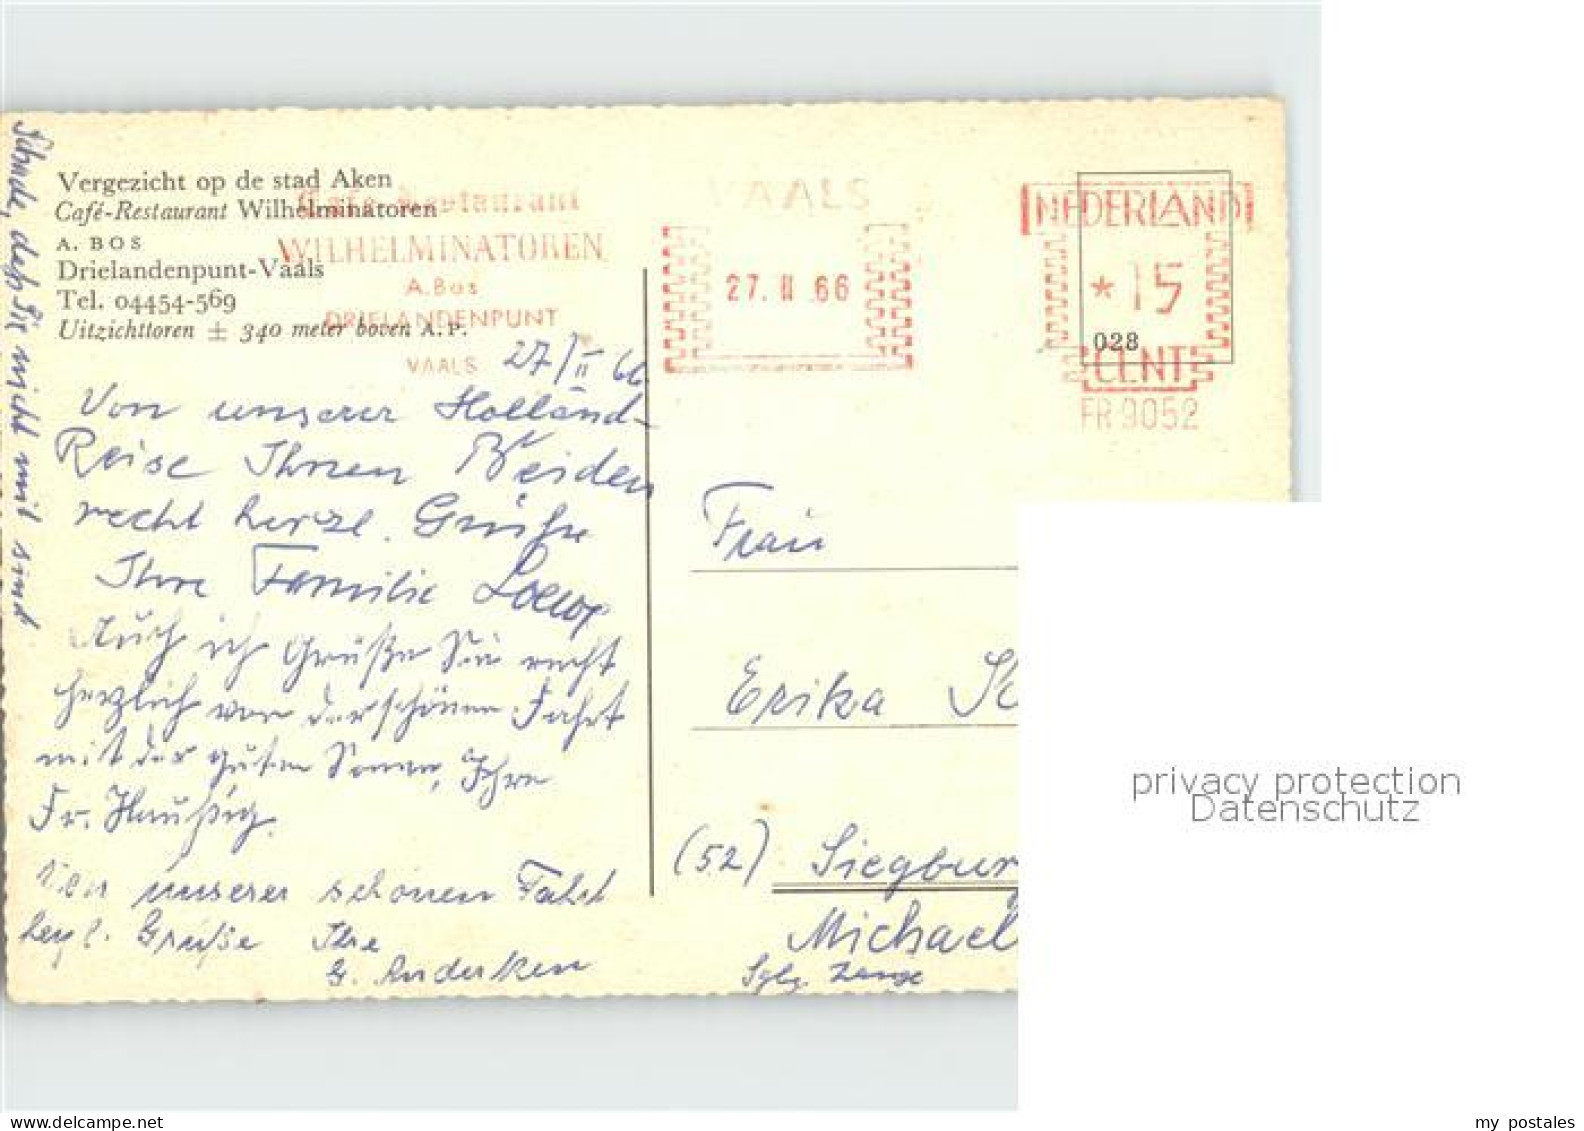 Vergezicht op de stad Aken
Café-Restaurant Wilhelminatoren
A. BOS
Drielandenpunt-Vaals
Tel. 04454-569
Uitzichttoren ± 340 meter boven A.P.
Café-Restaurant
WILHELMINATOREN
A. Bos
DRIELANDENPUNT
VAALS
VAALS
27. II 66
NEDERLAND
* 15
028
CENT
FR 9052
27/II 66.
Von unserer Holland-
Reise Ihnen Beiden
recht herzl. Grüße
Ihre Familie
Auch ich Grüße Sie recht
herzlich von der schönen Fahrt
mit der guten Sonne, Ihre
Fr. Haußig.
Von unserer schönen Fahrt
herzl. Grüße Ihre
G. Anderken
Schade, daß Sie nicht mit sind
Frau
Erika Sc
(52) Siegbur
Michael
Sgbg. Zange
privacy protection
Datenschutz
my postales
www.delcampe.net